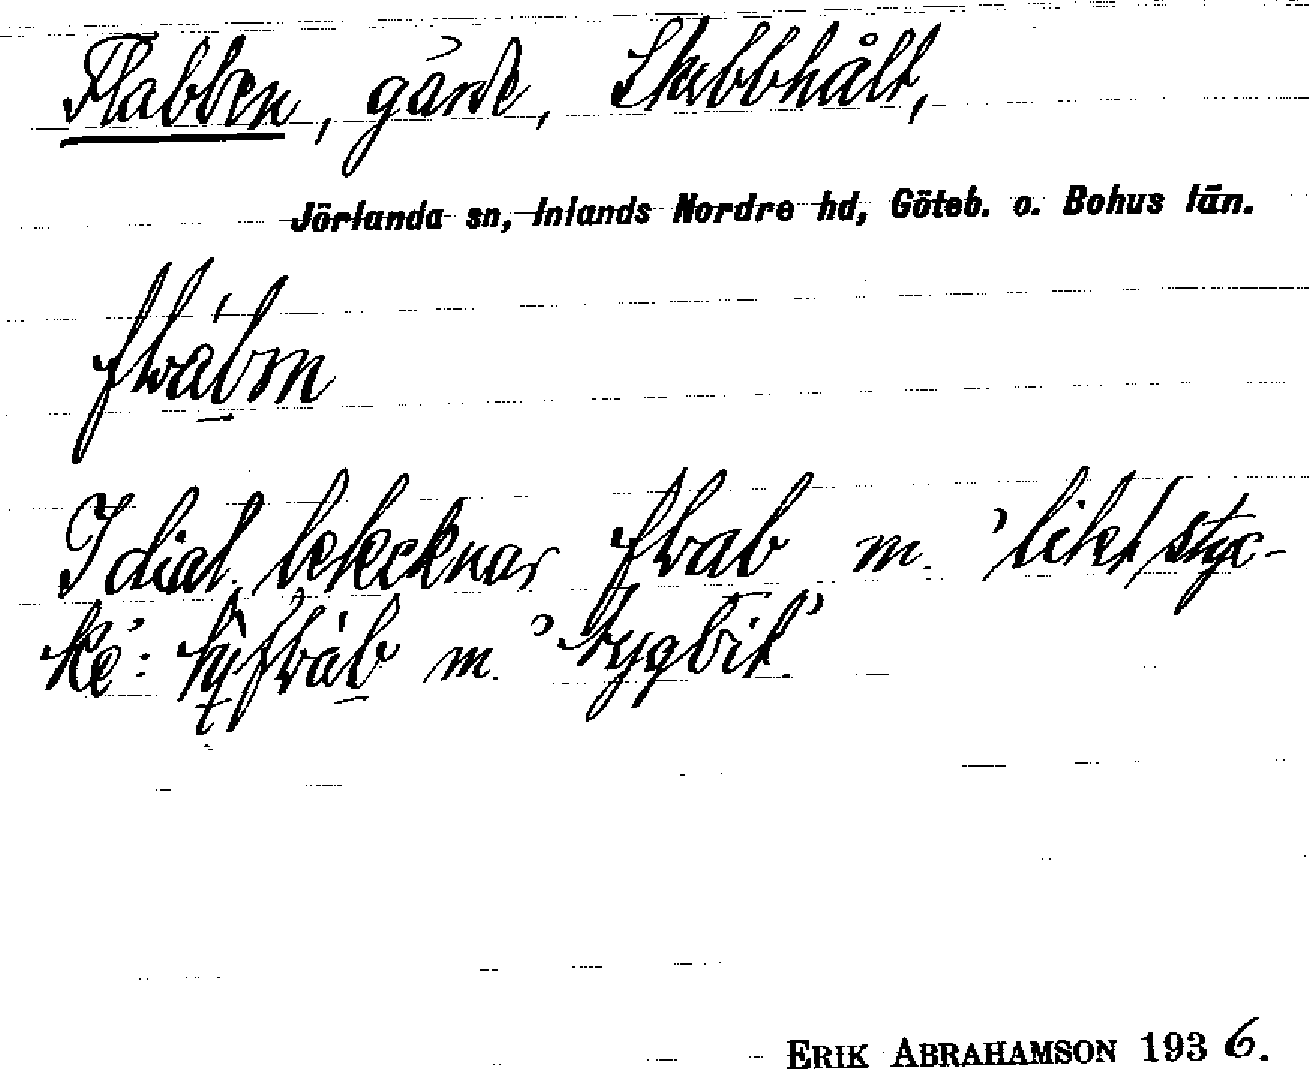 Flabben, gärde, Skabbhålt,
Jörlanda sn, Inlands Nordre hd, Göteb. o. Bohus län.
I dial. betecknar flab m. 'litet styc-
ke': m. 'tygbit'
ERIK ABRAHAMSON 1936.